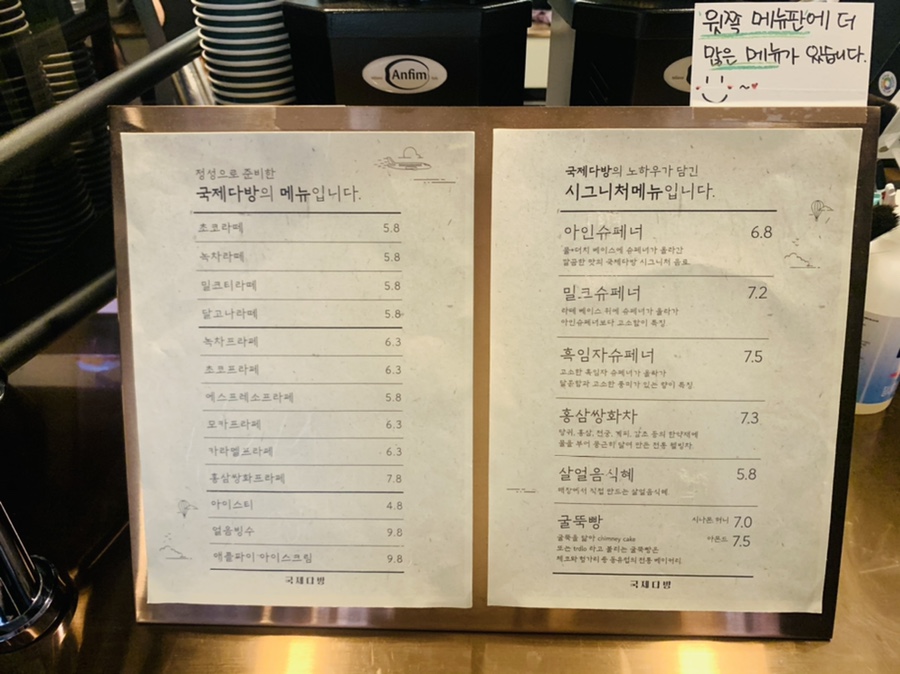 윗쪽 메뉴판에 더
많은 메뉴가 있습니다.
Anfim
정성으로 준비한
국제다방의 메뉴입니다.
초코라떼 5.8
녹차라떼 5.8
밀크티라떼 5.8
달고나라떼 5.8
녹차프라페 6.3
초코프라페 6.3
에스프레소프라페 5.8
모카프라페 6.3
카라멜프라페 6.3
홍삼쌍화프라페 7.8
아이스티 4.8
얼음빙수 9.8
애플파이 아이스크림 9.8
국제다방
국제다방의 노하우가 담긴
시그니처메뉴입니다.
아인슈페너 6.8
물+더치 베이스에 슈페너가 올라간
달콤한 맛의 국제다방 시그니처 음료
밀크슈페너 7.2
라떼 베이스 위에 슈페너가 올라가
아인슈페너보다 고소함이 특징
흑임자슈페너 7.5
고소한 흑임자 슈페너가 올라가
달콤함과 고소한 풍미가 있는 향이 특징
홍삼쌍화차 7.3
당귀, 홍삼, 천궁, 계피, 감초 등의 한약재에
물을 부어 뭉근히 달여 만든 전통 웰빙차
살얼음식혜 5.8
매장에서 직접 만드는 살얼음식혜
굴뚝빵 시나몬 허니 7.0
굴뚝을 닮아 chimney cake 아몬드 7.5
또는 trdlo 라고 불리는 굴뚝빵은
체코와 헝가리 등 동유럽의 전통 베이커리
국제다방